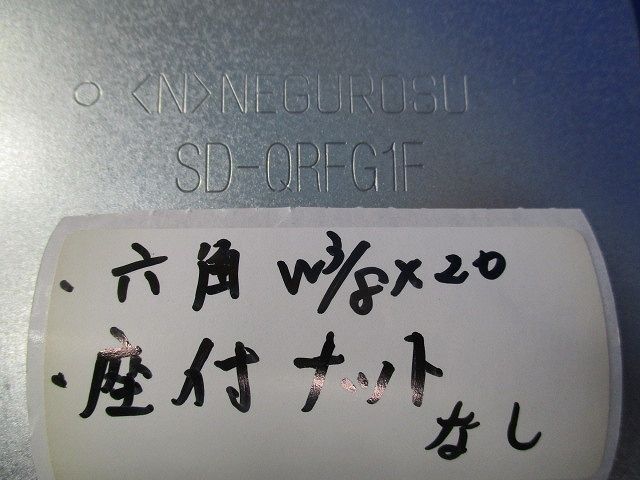 ○ <N>NEGUROSU
SD-QRFG1F
・六角 W3/8×20
・座付ナット
なし